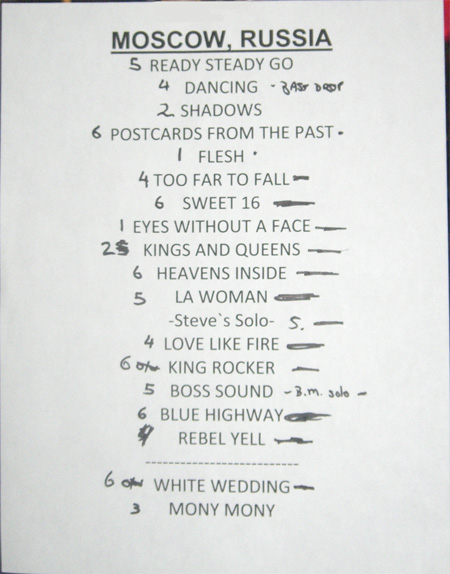 MOSCOW, RUSSIA
5 READY STEADY GO
4 DANCING - BASS DROP
2 SHADOWS
6 POSTCARDS FROM THE PAST.
1 FLESH .
4 TOO FAR TO FALL
6 SWEET 16
1 EYES WITHOUT A FACE
2 KINGS AND QUEENS
6 HEAVENS INSIDE
5 LA WOMAN
-Steve`s Solo- 5.
4 LOVE LIKE FIRE
6 KING ROCKER
5 BOSS SOUND - B.M. solo -
6 BLUE HIGHWAY
REBEL YELL
---------------------------
6 WHITE WEDDING
3 MONY MONY